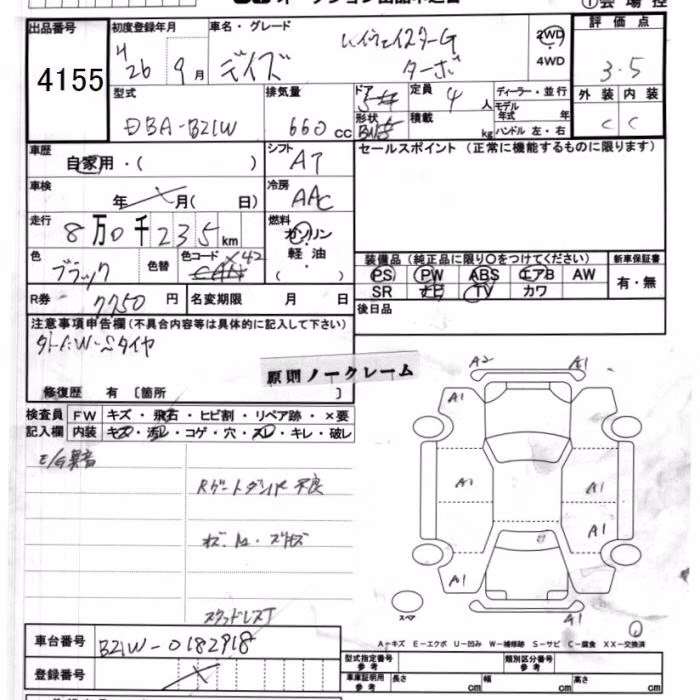 出品番号
4155
初度登録年月
H26 9月
車名・グレード
デイズ
ハイウェイスターG
ターボ
2WD
4WD
評価点
3.5
型式
DBA-B21W
排気量
660 cc
ドア
5
定員
4 人
形状
積載
kg
ディーラー・並行
モデル
年式 年
ハンドル 左・右
外装
内装
C
C
車歴
自家用・( )
シフト
AT
セールスポイント (正常に機能するものに限ります)
車検
年 月( 日)
冷房
AAC
走行
8万0千235km
燃料
ガソリン
軽油
( )
色
ブラック
色替
色コード
X42
装備品 (純正品に限り○をつけてください)
新車保証書
PS PW ABS エアB AW
SR ナビ TV カワ
有・無
R券
7750 円
名変期限 月 日
後日品
注意事項申告欄(不具合内容等は具体的に記入して下さい)
原則ノークレーム
修復歴 有 〔箇所 〕
検査員
記入欄
FW キズ・飛石・ヒビ割・リペア跡・×要
内装 キズ・汚れ・コゲ・穴・スレ・キレ・破レ
E/G異音
Rゲートダンパー不良
スタッドレスT
A2
A1
A1
A1
A1
A1
A1
A1
A1
スペア
A-キズ E-エクボ U-凹み W-補修跡 S-サビ C-腐食 XX-交換済
車台番号
B21W-0182918
登録番号
型式指定番号
参考
類別区分番号
参考
車庫証明用
参考
長さ cm
幅 cm
高さ cm